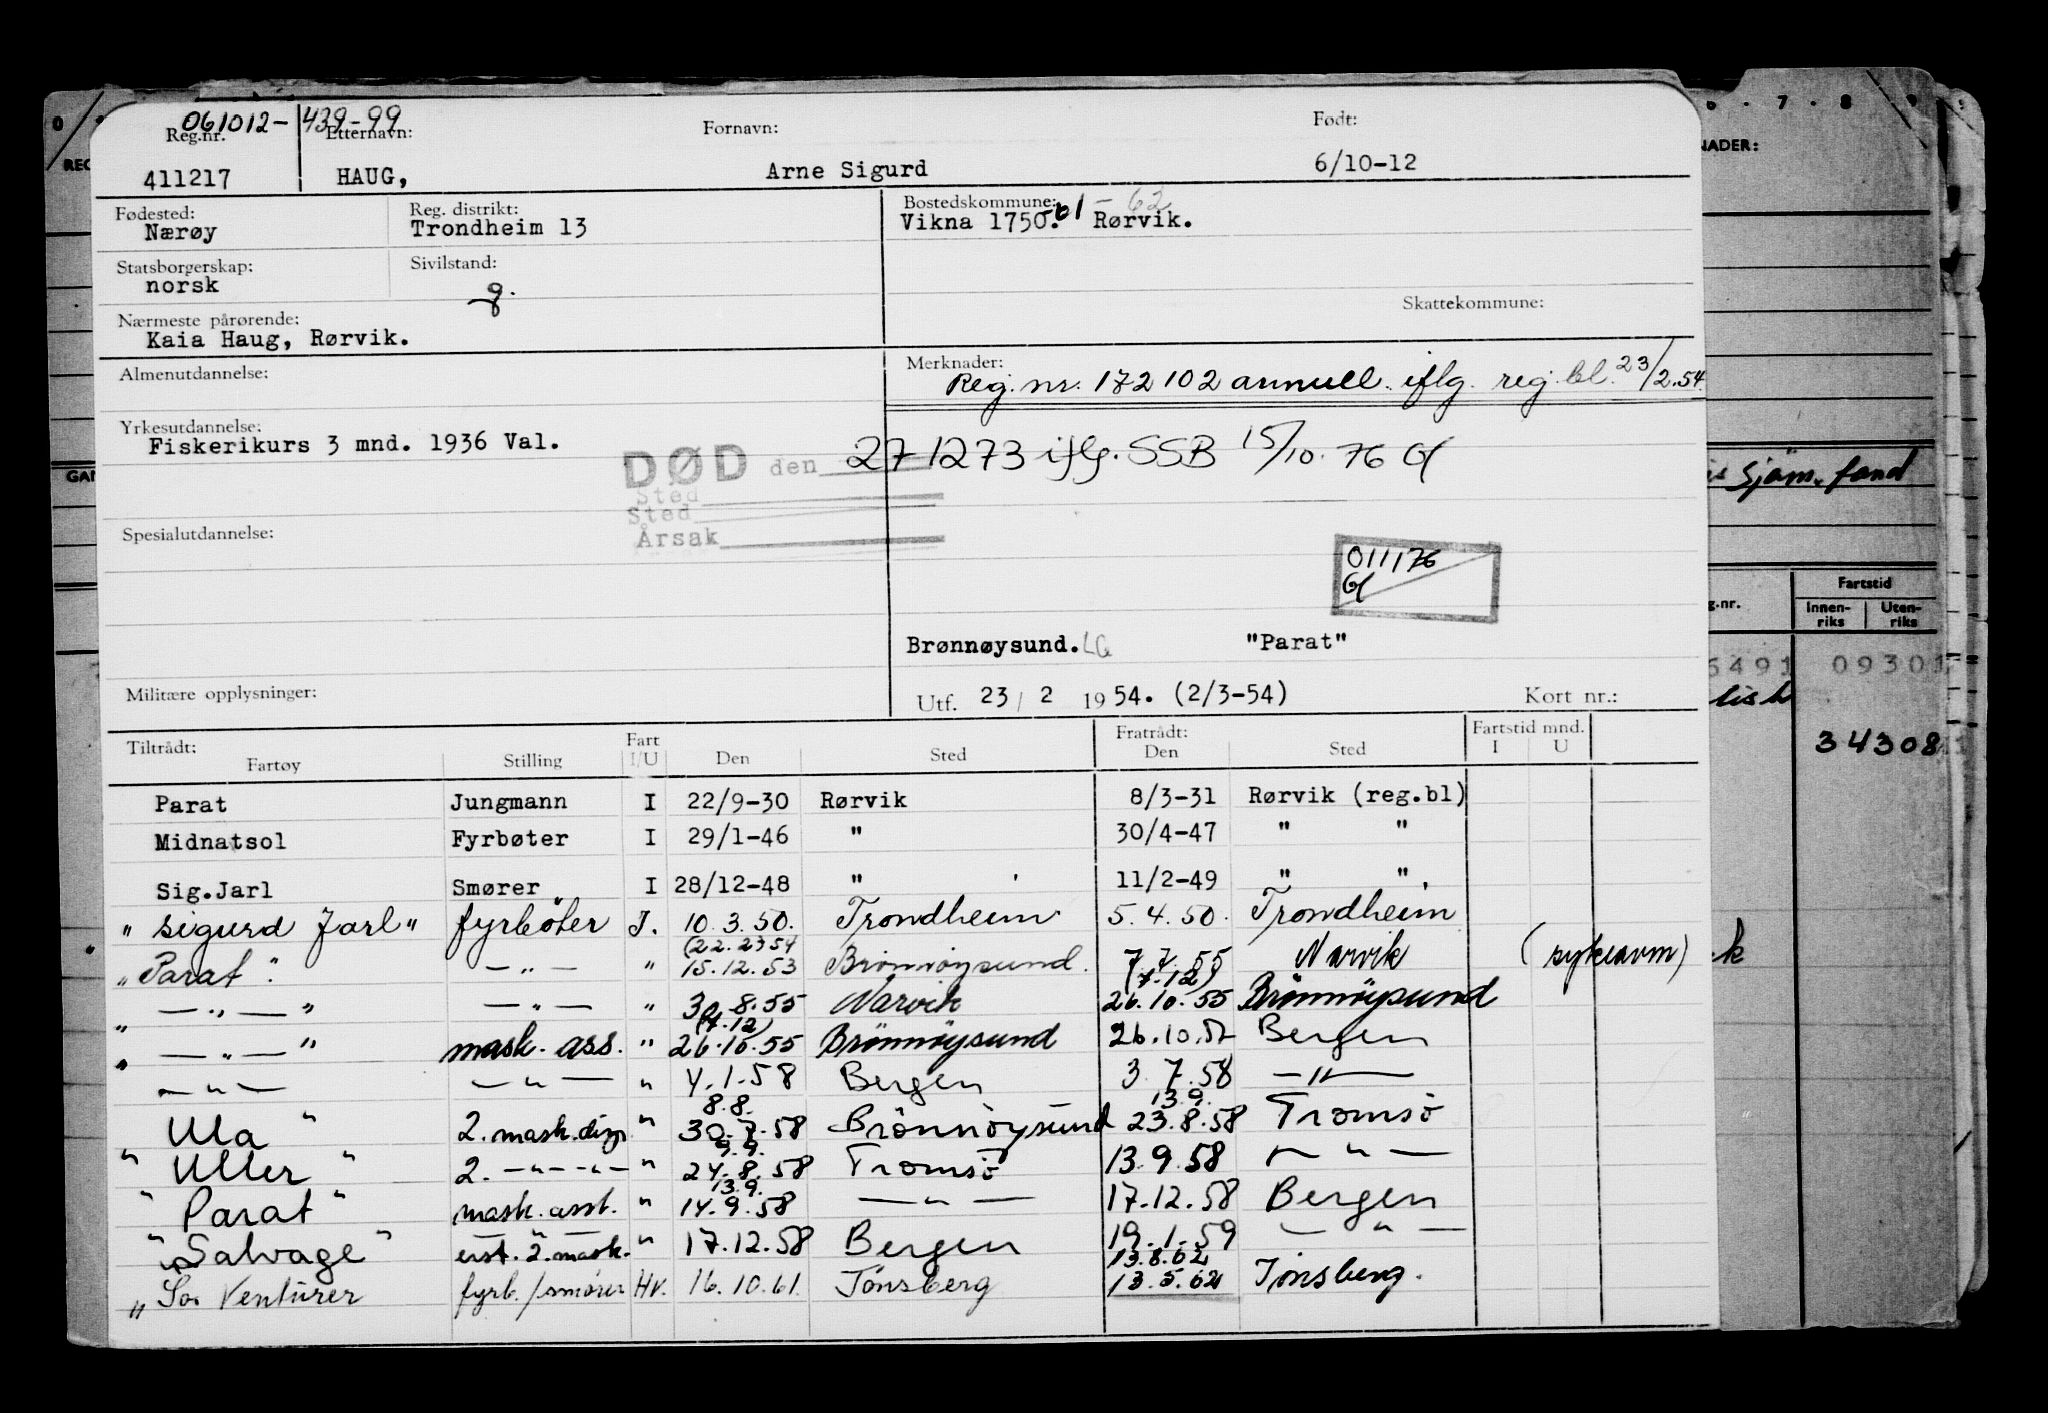 061012-43999
Reg.nr. Etternavn: Fornavn: Født:
411217 HAUG, Arne Sigurd 6/10-12
Fødested: Reg. distrikt: Bostedskommune:
Nærøy Trondheim 13 Vikna 1750.-61-62 Rørvik.
Statsborgerskap: Sivilstand:
norsk g.
Skattekommune:
Nærmeste pårørende:
Kaia Haug, Rørvik.
Almenutdannelse: Merknader:
Reg. nr. 172102 annull. iflg. reg. bl. 23/2.54.
Yrkesutdannelse:
Fiskerikurs 3 mnd. 1936 Val.
DØD den 271273 iflg. SSB 15/10.76 Gf
Sted
Sted
Årsak
Spesialutdannelse:
011176
Gf
Brønnøysund. LG "Parat"
Militære opplysninger: Utf. 23 / 2 1954. (2/3-54) Kort nr.:
Tiltrådt: Fart Fratrådt: Fartstid mnd.
Fartøy Stilling I/U Den Sted Den Sted I U
Parat Jungmann I 22/9-30 Rørvik 8/3-31 Rørvik (reg.bl)
Midnatsol Fyrbøter I 29/1-46 " 30/4-47 " "
Sig.Jarl Smører I 28/12-48 " 11/2-49 " "
"Sigurd Jarl" fyrböter I. 10.3.50. Trondheim 5.4.50. Trondheim
(22.2354
"Parat". — " — " 15.12.53 Brönnöysund. 7.7.55 Narvik (sykeavm)
(7.12)
" — " — " — " — " 30.8.55 Narvik 26.10.55 Brönnöysund
(7.12)
" — " — " mask. ass. " 26.10.55 Brönnöysund 26.10.57 Bergen
— " — — " — " 4.1.58 Bergen 3.7.58 — " —
8.8. 13.9.
Ula " 2. mask.disp " 30.7.58 Brönnöysund 23.8.58 Tromsö
9.9.
" Uller " 2. — " — " — " 24.8.58 Tromsö 13.9.58 — " —
13.9.
" Parat " mask. asst. " 14.9.58 — " — 17.12.58 Bergen
" Salvage " erst. 2. mask. " 17.12.58 Bergen 19.1.59 — " —
13.8.62
" Sos Venturer fyrb./smører Hv. 16.10.61 Tønsberg 13.5.62 Tønsberg.
7 . 8
NADER:
Sjöm. fond
g.nr. Fartstid
Innen-riks Uten-riks
6491 09301
34308